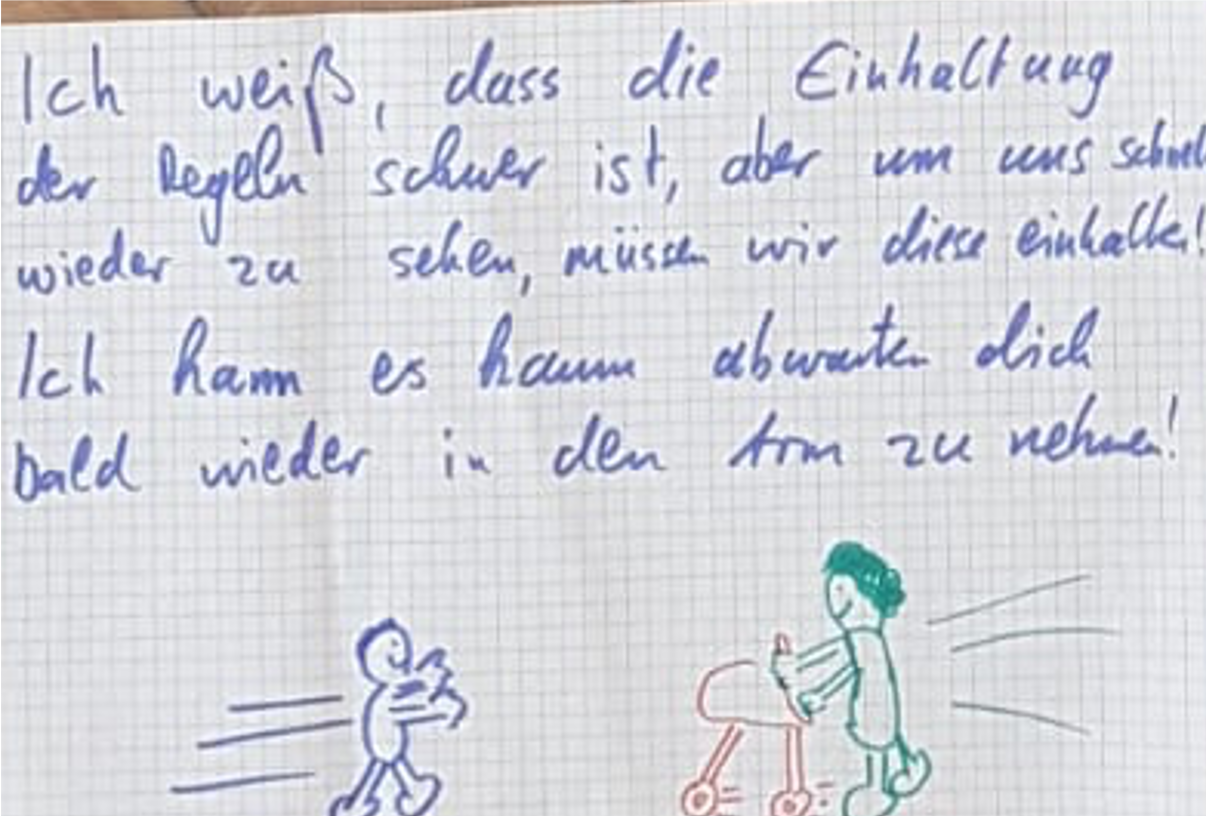 Ich weiß, dass die Einhaltung
der Regeln schwer ist, aber um uns schnell
wieder zu sehen, müssen wir diese einhalten!
Ich kann es kaum abwarten dich
bald wieder in den Arm zu nehmen!